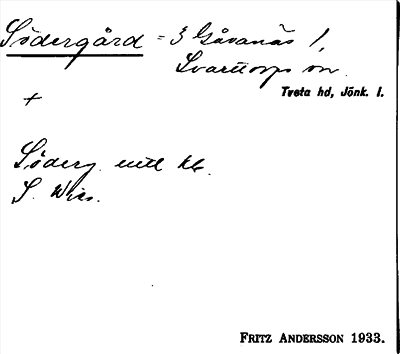 Södergård = 3 Gåvanäs 1,
Svarttorps sn.
Tveta hd, Jönk. l.
+
Söderg. enl kb.
S.
FRITZ ANDERSSON 1933.